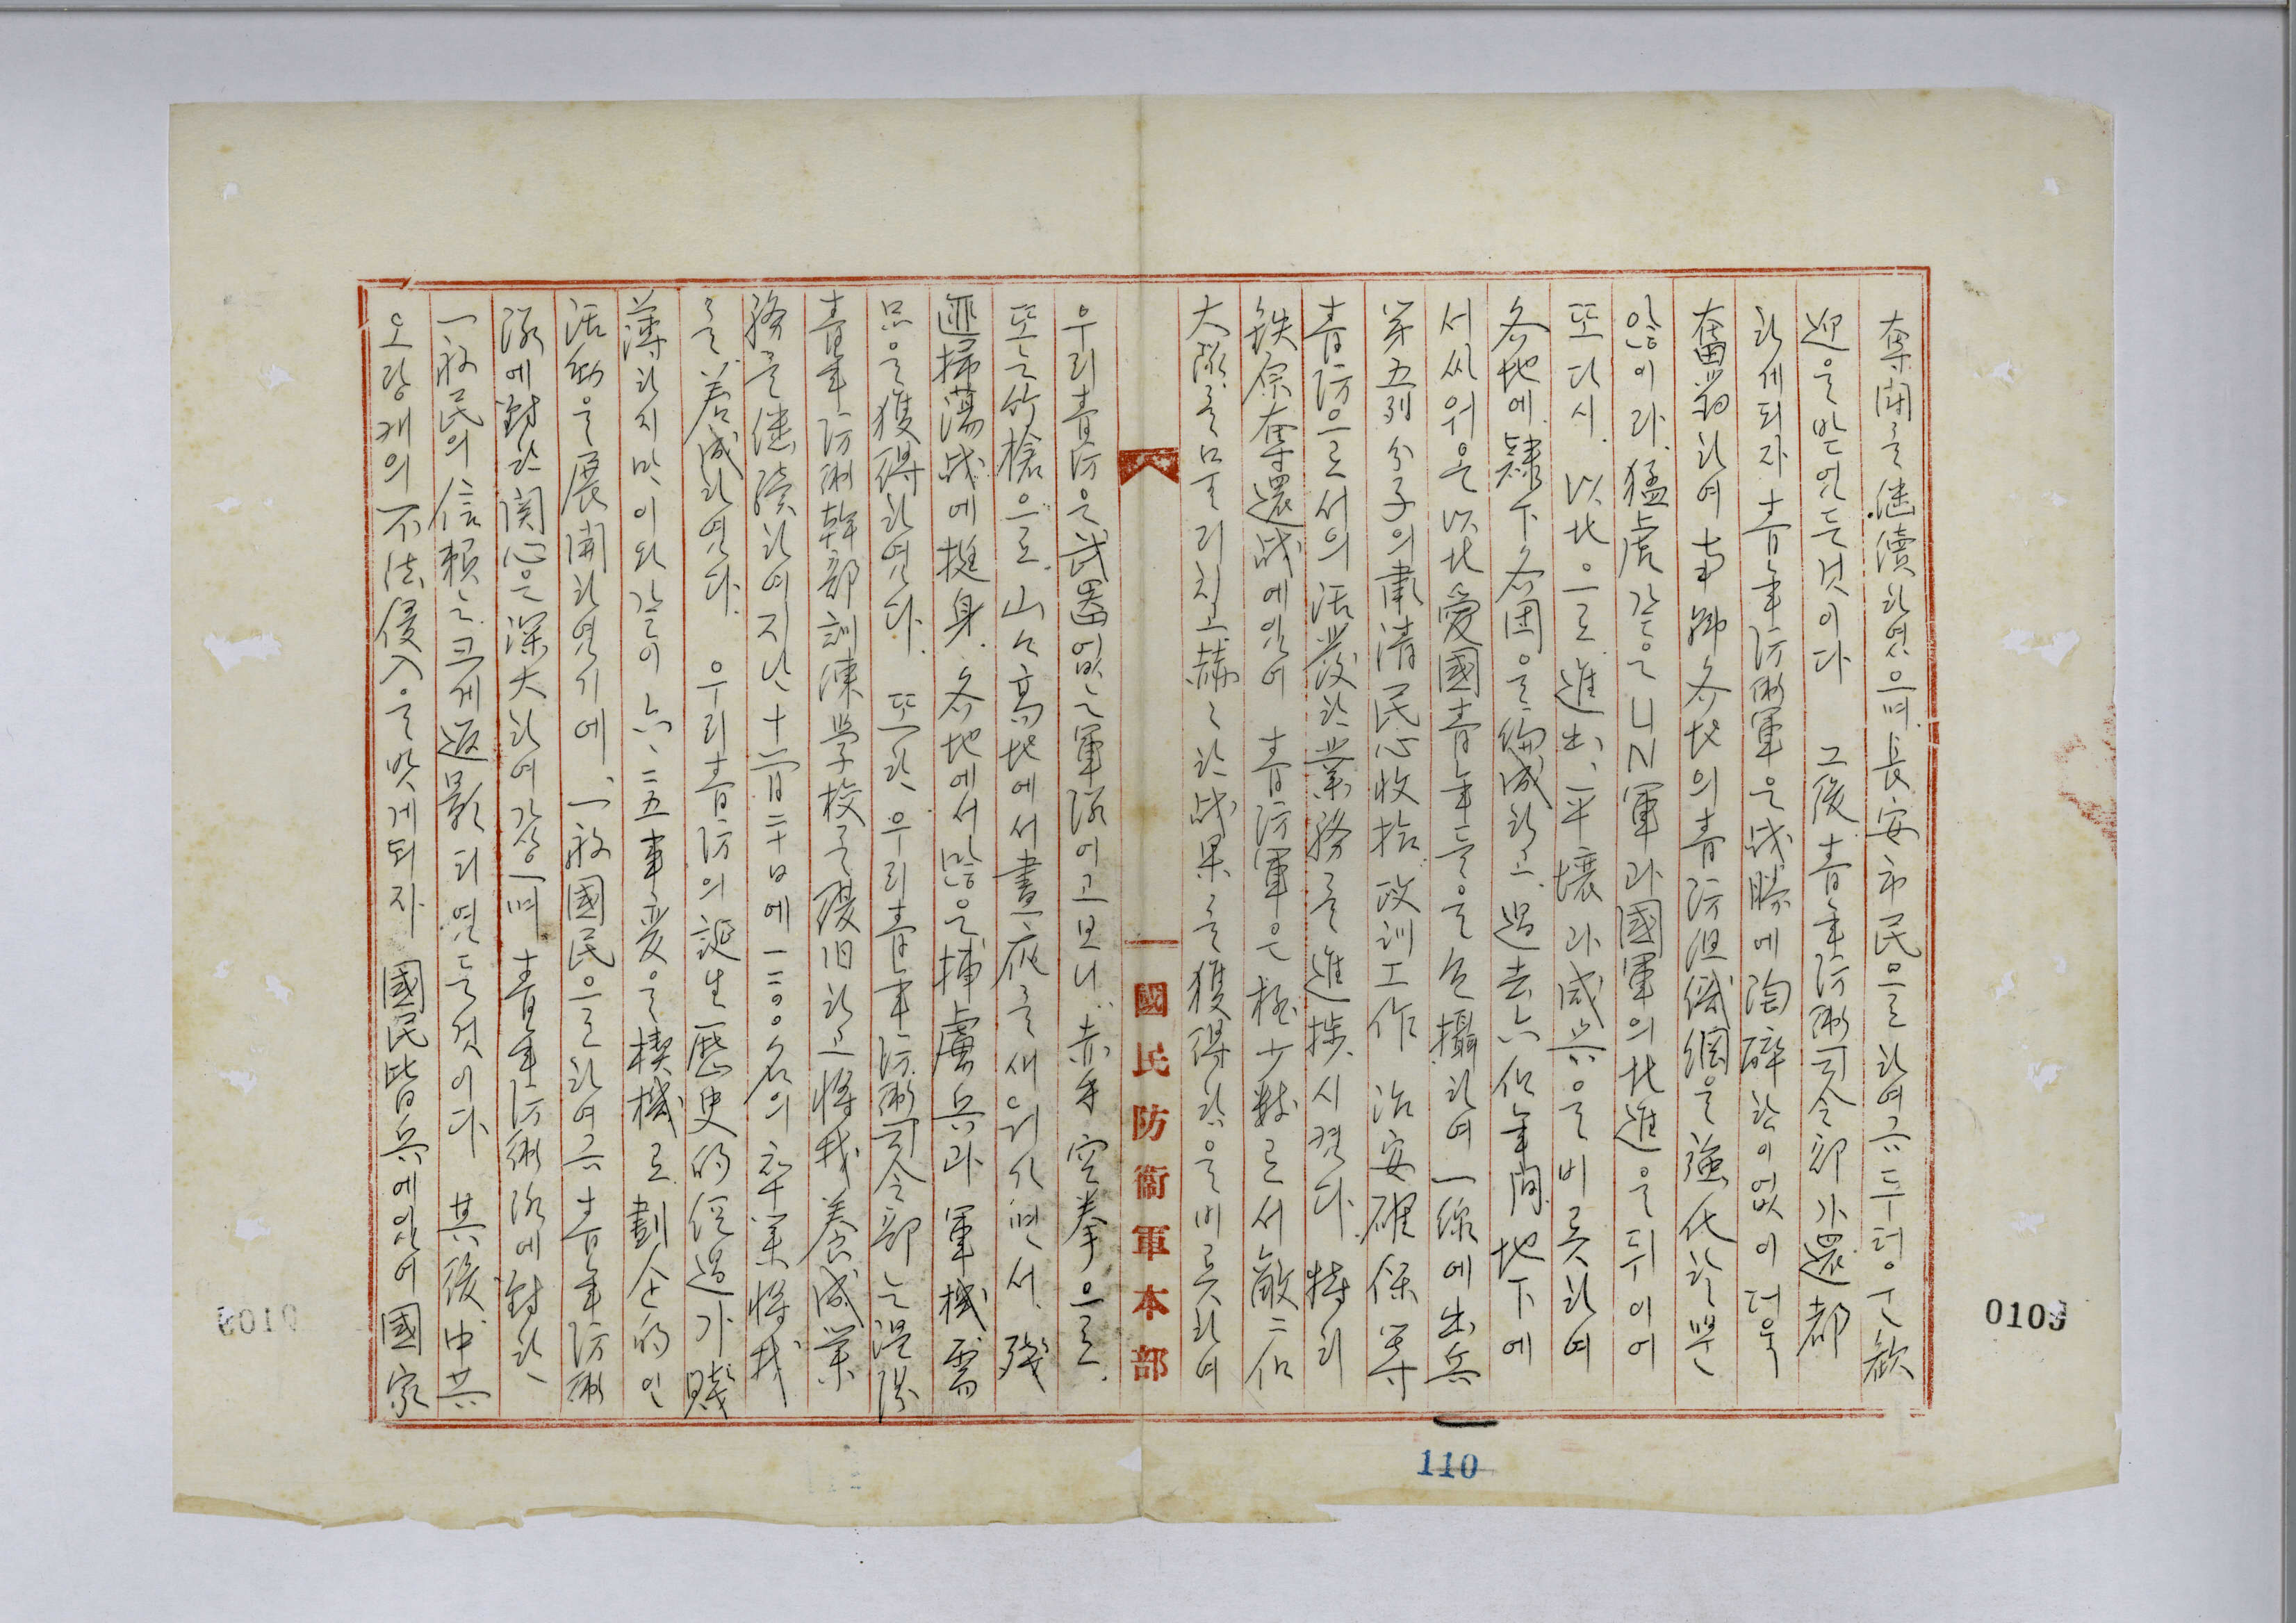 奪鬪를 継續하였으며 長安市民으로하여금 두터운 歓
迎을 받었든것이다 그後 青年防衛司令部가 還都
하게되자 青年防衛軍은 战勝에 陶酔함이없이 더욱
奮鬪하여 南韓各地의 青防組織網을 強化할뿐
않이라 猛虎같은 UN軍과 國軍의 北進을 뒤이어
또다시 以北으로 進出、平壤과 咸兴을 비롯하여
各地에 隷下各団을 編成하고 過去六個年間 地下에
서 씨워온 以北愛國青年들을 包攝하여 一線에 出兵
第五列分子의 肅清 民心收拾 政訓工作 治安確保 等
青防으로서의 活潑한 業務를 進捗시켰다 特히
鉄原奪還战에있어 青防軍은 極少数로서 敵二個
大隊를 물리치고 赫々한 战果를 獲得함을 비롯하여
國民防衛軍本部
우리青防은 武器없는 軍隊이고보니 赤手空拳으로
또는 竹槍으로 山々高地에서 晝夜를 새워가면서 殘
匪掃蕩战에 挺身 各地에서 많은 捕虜兵과 軍機需
品은 獲得하였다 또한 우리青年防衛司令部는 温陽
青年防衛幹部訓練学校를 復旧하고 將校養成業
務를 継續하여 지난十二月二十日에 一二〇〇名의 卒業將校
를 養成하였다 우리青防의 誕生歴史的経過가 賤
薄하지만 이와같이 六、二五事変을 楔機로 劃企的인
活動을 展開하였기에、一般國民으로하여금 青年防衛
隊에 對한 関心은 深大하여갔으며 青年防衛隊에 對한
一般民의 信頼는 크게 返影되였든것이다 其後 中共
오랑캐의 不法侵入을 맞게되자 國民皆兵에있어 國家
0109
110